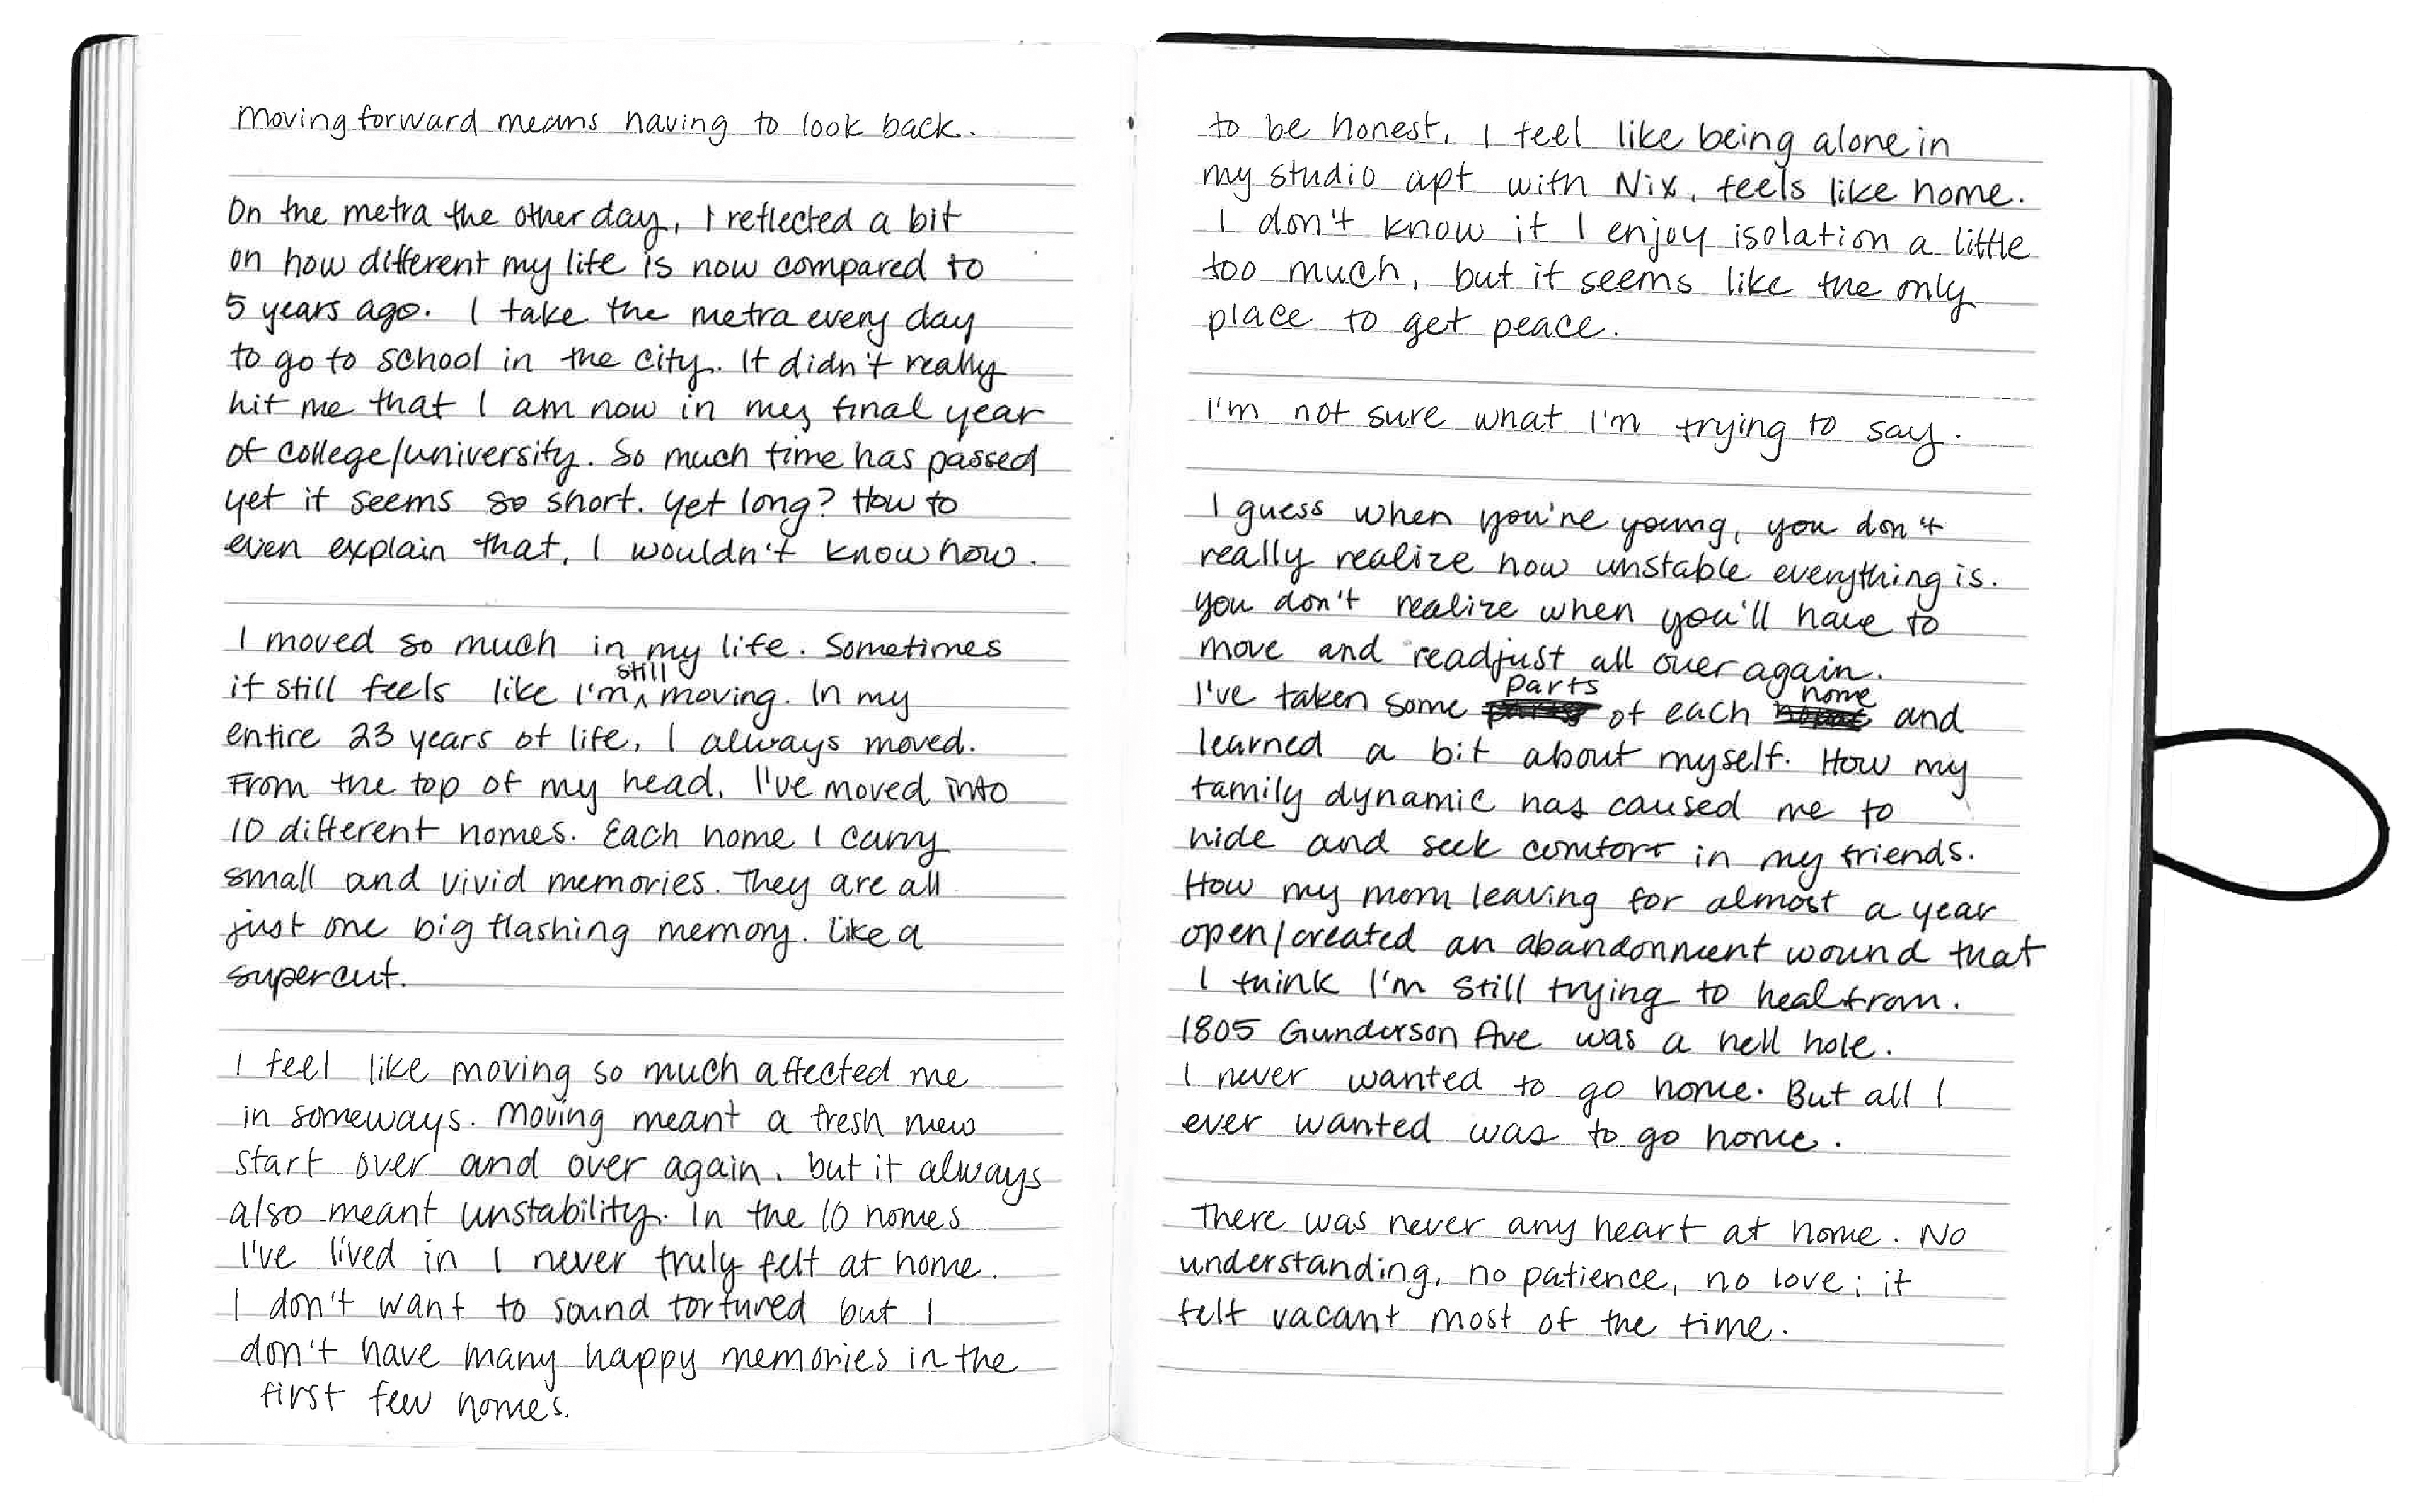 Moving forward means having to look back.
On the metra the other day, I reflected a bit
on how different my life is now compared to
5 years ago. I take the metra every day
to go to school in the city. It didn't really
hit me that I am now in my final year
of college/university. So much time has passed
yet it seems so short. Yet long? How to
even explain that, I wouldn't know how.
I moved so much in my life. Sometimes
still
it still feels like I'm ^ moving. In my
entire 23 years of life, I always moved.
From the top of my head, I've moved into
10 different homes. Each home I carry
small and vivid memories. They are all
just one big flashing memory. Like a
supercut.
I feel like moving so much affected me
in someways. Moving meant a fresh new
start over and over again, but it always
also meant unstability. In the 10 homes
I've lived in I never truly felt at home.
I don't want to sound tortured but I
don't have many happy memories in the
first few homes.
to be honest, I feel like being alone in
my studio apt with Nix, feels like home.
I don't know if I enjoy isolation a little
too much, but it seems like the only
place to get peace.
I'm not sure what I'm trying to say.
I guess when you're young, you don't
really realize how unstable everything is.
You don't realize when you'll have to
move and readjust all over again.
parts home
I've taken some of each and
learned a bit about myself. How my
family dynamic has caused me to
hide and seek comfort in my friends.
How my mom leaving for almost a year
open/created an abandonment wound that
I think I'm still trying to heal from.
1805 Gunderson Ave was a hell hole.
I never wanted to go home. But all I
ever wanted was to go home.
There was never any heart at home. No
understanding, no patience, no love; it
felt vacant most of the time.